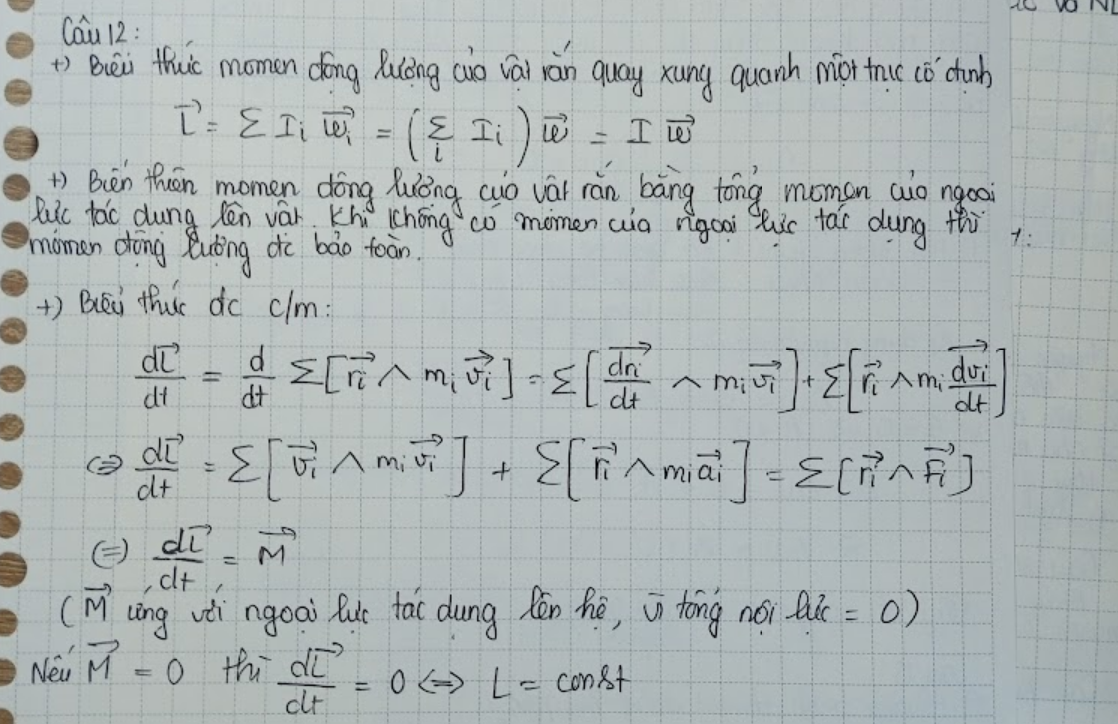 Câu 12:
+) Biểu thức momen động lượng của vật rắn quay xung quanh một trục cố định
\vec{L} = Σ I_i \vec{w_i} = (Σ_i I_i) \vec{w} = I \vec{w}
+) Biến thiên momen động lượng của vật rắn bằng tổng momen của ngoại
lực tác dụng lên vật. Khi không có momen của ngoại lực tác dụng thì
mômen động lượng đc bảo toàn.
+) Biểu thức đc c/m:
\frac{d\vec{L}}{dt} = \frac{d}{dt} Σ[\vec{r_i} ∧ m_i \vec{v_i}] = Σ[\frac{\vec{dr_i}}{dt} ∧ m_i \vec{v_i}] + Σ[\vec{r_i} ∧ m_i \frac{\vec{dv_i}}{dt}]
⇔ \frac{d\vec{L}}{dt} = Σ[\vec{v_i} ∧ m_i \vec{v_i}] + Σ[\vec{r_i} ∧ m_i \vec{a_i}] = Σ[\vec{r_i} ∧ \vec{F_i}]
(=) \frac{d\vec{L}}{dt} = \vec{M}
(\vec{M} ứng với ngoại lực tác dụng lên hệ, vì tổng nội lực = 0)
Nếu \vec{M} = 0 thì \frac{d\vec{L}}{dt} = 0 ⇔ L = const